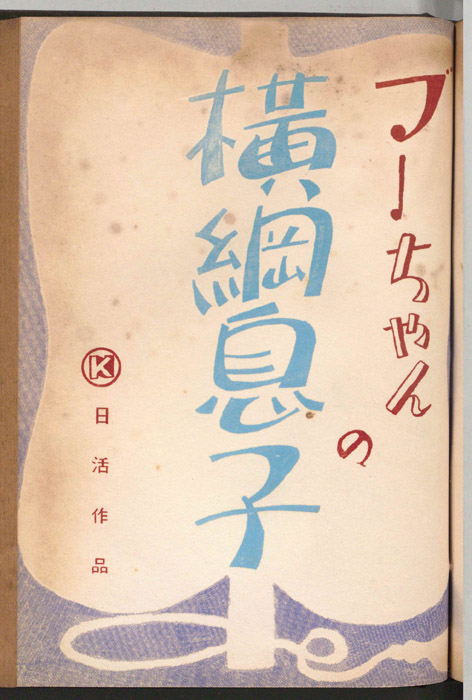 ブーちゃんの
横綱息子
K
日活作品